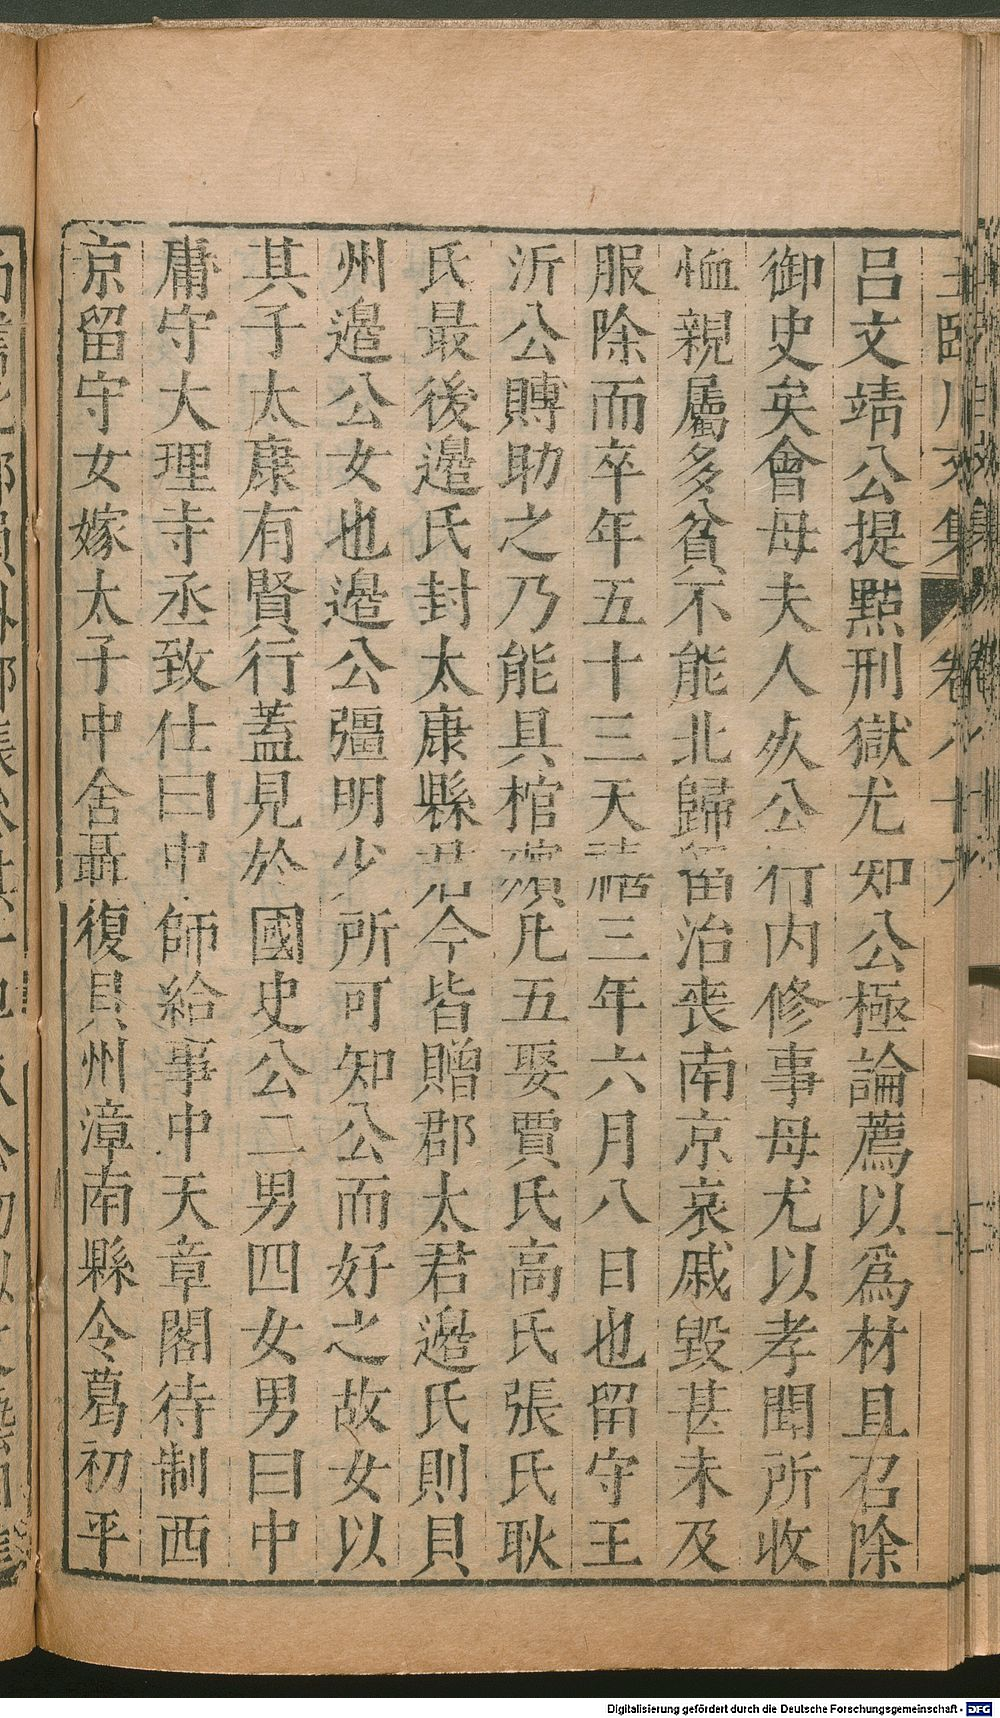 呂文靖公提點刑獄尤知公極論薦以爲材且召除
御史矣會母夫人疾公行内修事母尤以孝聞所收
恤親屬多貧不能北歸留治喪南京哀戚毀甚未及
服除而卒年五十三天禧三年六月八日也留守王
沂公賻助之乃能具棺殯凡五娶賈氏高氏張氏耿
氏最後邊氏封太康縣君今皆贈郡太君邊氏則貝
州邊公女也邊公彊明少所可知公而好之故女以
其子太康有賢行蓋見於國史公二男四女男曰中
庸守大理寺丞致仕曰中師給事中天章閣待制西
京留守女嫁太子中舍聶復貝州漳南縣令葛初平
Digitalisierung gefördert durch die Deutsche Forschungsgemeinschaft - DFG